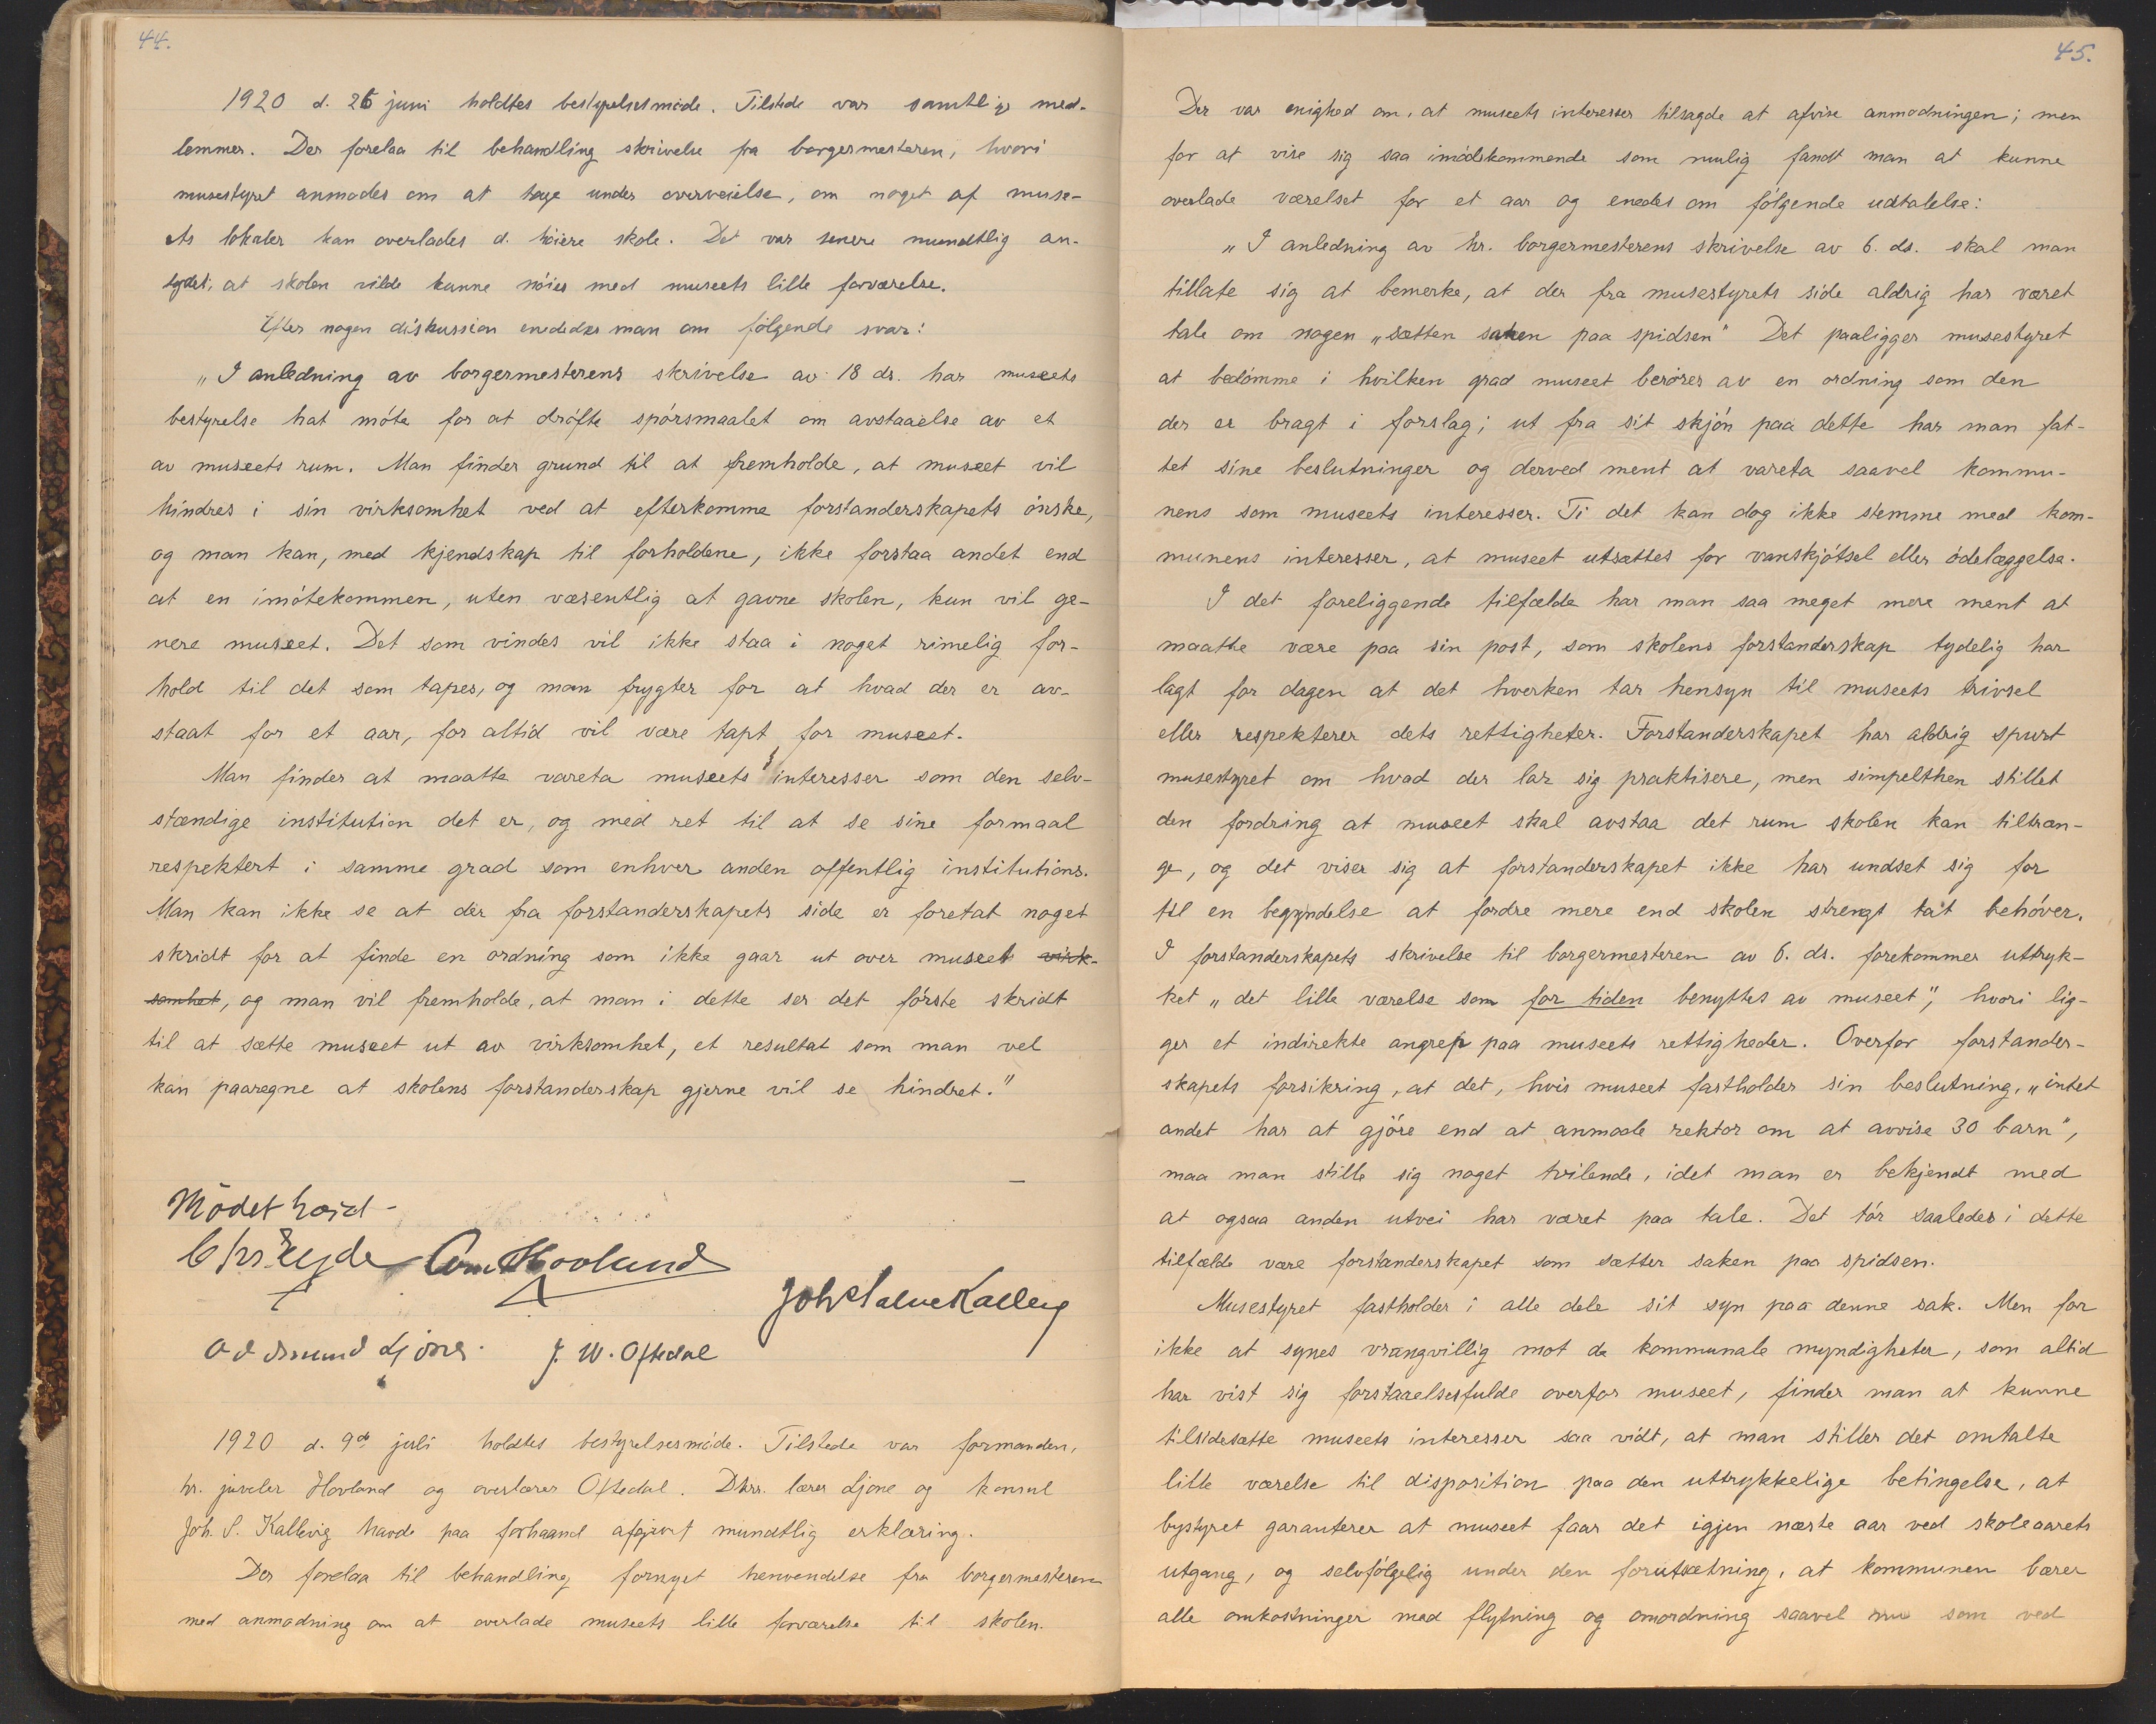 44.
1920 d. 26 juni holdtes bestyrelsesmöde. Tilstede var samtlige med-
lemmer. Der forelaa til behandling skrivelse fra borgermesteren, hvori
musestyret anmodes om at tage under overveielse, om noget af muse-
ets lokaler kan overlades d. höiere skole. Det var senere mundtlig an-
tydet, at skolen vilde kunne nöies med museets lille forværelse.
Efter nogen diskussion enededes man om fölgende svar:
„I anledning av borgermesterens skrivelse av 18 ds. har museets
bestyrelse hat möte for at dröfte spörsmaalet om avstaaelse av et
av museets rum. Man finder grund til at fremholde, at museet vil
hindres i sin virksomhet ved at efterkomme forstanderskapets önske,
og man kan, med kjendskap til forholdene, ikke forstaa andet end
at en imötekommen, uten væsentlig at gavne skolen, kun vil ge-
nere museet. Det som vindes vil ikke staa i noget rimelig for-
hold til det som tapes, og man frygter for at hvad der er av-
staat for et aar, for altid vil være tapt for museet.
Man finder at maatte vareta museets interesser som den selv-
stændige institution det er, og med ret til at se sine formaal
respektert i samme grad som enhver anden offentlig institutions.
Man kan ikke se at der fra forstanderskapets side er foretat noget
skridt for at finde en ordning som ikke gaar ut over museet virk-
somhet, og man vil fremholde, at man i dette ser det förste skridt
til at sætte museet ut av virksomhet, et resultat som man vel
kan paaregne at skolens forstanderskap gjerne vil se hindret."
Mödet hævd -
Chr Eyde Com Hovland
Joh Salve Kallevig
Oddmund Ljone. J. W. Oftedal
1920 d. 9de juli holdtes bestyrelsesmöde. Tilstede var formanden,
hr. juveler Hovland og overlærer Oftedal. Dhrr. lærer Ljone og konsul
Joh. S. Kallevig havde paa forhaand afgivet mundtlig erklæring.
Der forelaa til behandling fornyet henvendelse fra borgermesteren
med anmodning om at overlade museets lille forværelse til skolen.
45.
Der var enighed om, at museets interesser tilsagde at afvise anmodningen; men
for at vise sig saa imödekommende som mulig fandt man at kunne
overlade værelset for et aar og enedes om fölgende udtalelse:
„I anledning av hr. borgermesterens skrivelse av 6. ds. skal man
tillate sig at bemerke, at der fra musestyrets side aldrig har været
tale om nogen „sætten saken paa spidsen" Det paaligger musestyret
at bedömme i hvilken grad museet beröres av en ordning som den
der er bragt i forslag; ut fra sit skjön paa dette har man fat-
tet sine beslutninger og derved ment at vareta saavel kommu-
nens som museets interesser. Ti det kan dog ikke stemme med kom-
munens interesser, at museet utsættes for vanskjötsel eller ödelæggelse.
I det foreliggende tilfælde har man saa meget mere ment at
maatte være paa sin post, som skolens forstanderskap tydelig har
lagt for dagen at det hverken tar hensyn til museets trivsel
eller respekterer dets rettigheter. Forstanderskapet har aldrig spurt
musestyret om hvad der lar sig praktisere, men simpelthen stillet
den fordring at museet skal avstaa det rum skolen kan tiltræn-
ge, og det viser sig at forstanderskapet ikke har undset sig for
til en begyndelse at fordre mere end skolen strengt tat behöver.
I forstanderskapets skrivelse til borgermesteren av 6. ds. forekommer uttryk-
ket „det lille værelse som for tiden benyttes av museet", hvori lig-
ger et indirekte angrep paa museets rettigheder. Overfor forstander-
skapets forsikring, at det, hvis museet fastholder sin beslutning, „intet
andet har at gjöre end at anmode rektor om at avvise 30 barn",
maa man stille sig noget tvilende, idet man er bekjendt med
at ogsaa anden utvei har været paa tale. Det tör saaledes i dette
tilfælde være forstanderskapet som sætter saken paa spidsen.
Musestyret fastholder i alle dele sit syn paa denne sak. Men for
ikke at synes vrangvillig mot de kommunale myndigheter, som altid
har vist sig forstaaelsesfulde overfor museet, finder man at kunne
tilsidesætte museets interesser saa vidt, at man stiller det omtalte
lille værelse til disposition paa den uttrykkelige betingelse, at
bystyret garanterer at museet faar det igjen næste aar ved skoleaarets
utgang, og selvfölgelig under den forutsætning, at kommunen bærer
alle omkostninger med flytning og omordning saavel nu som ved